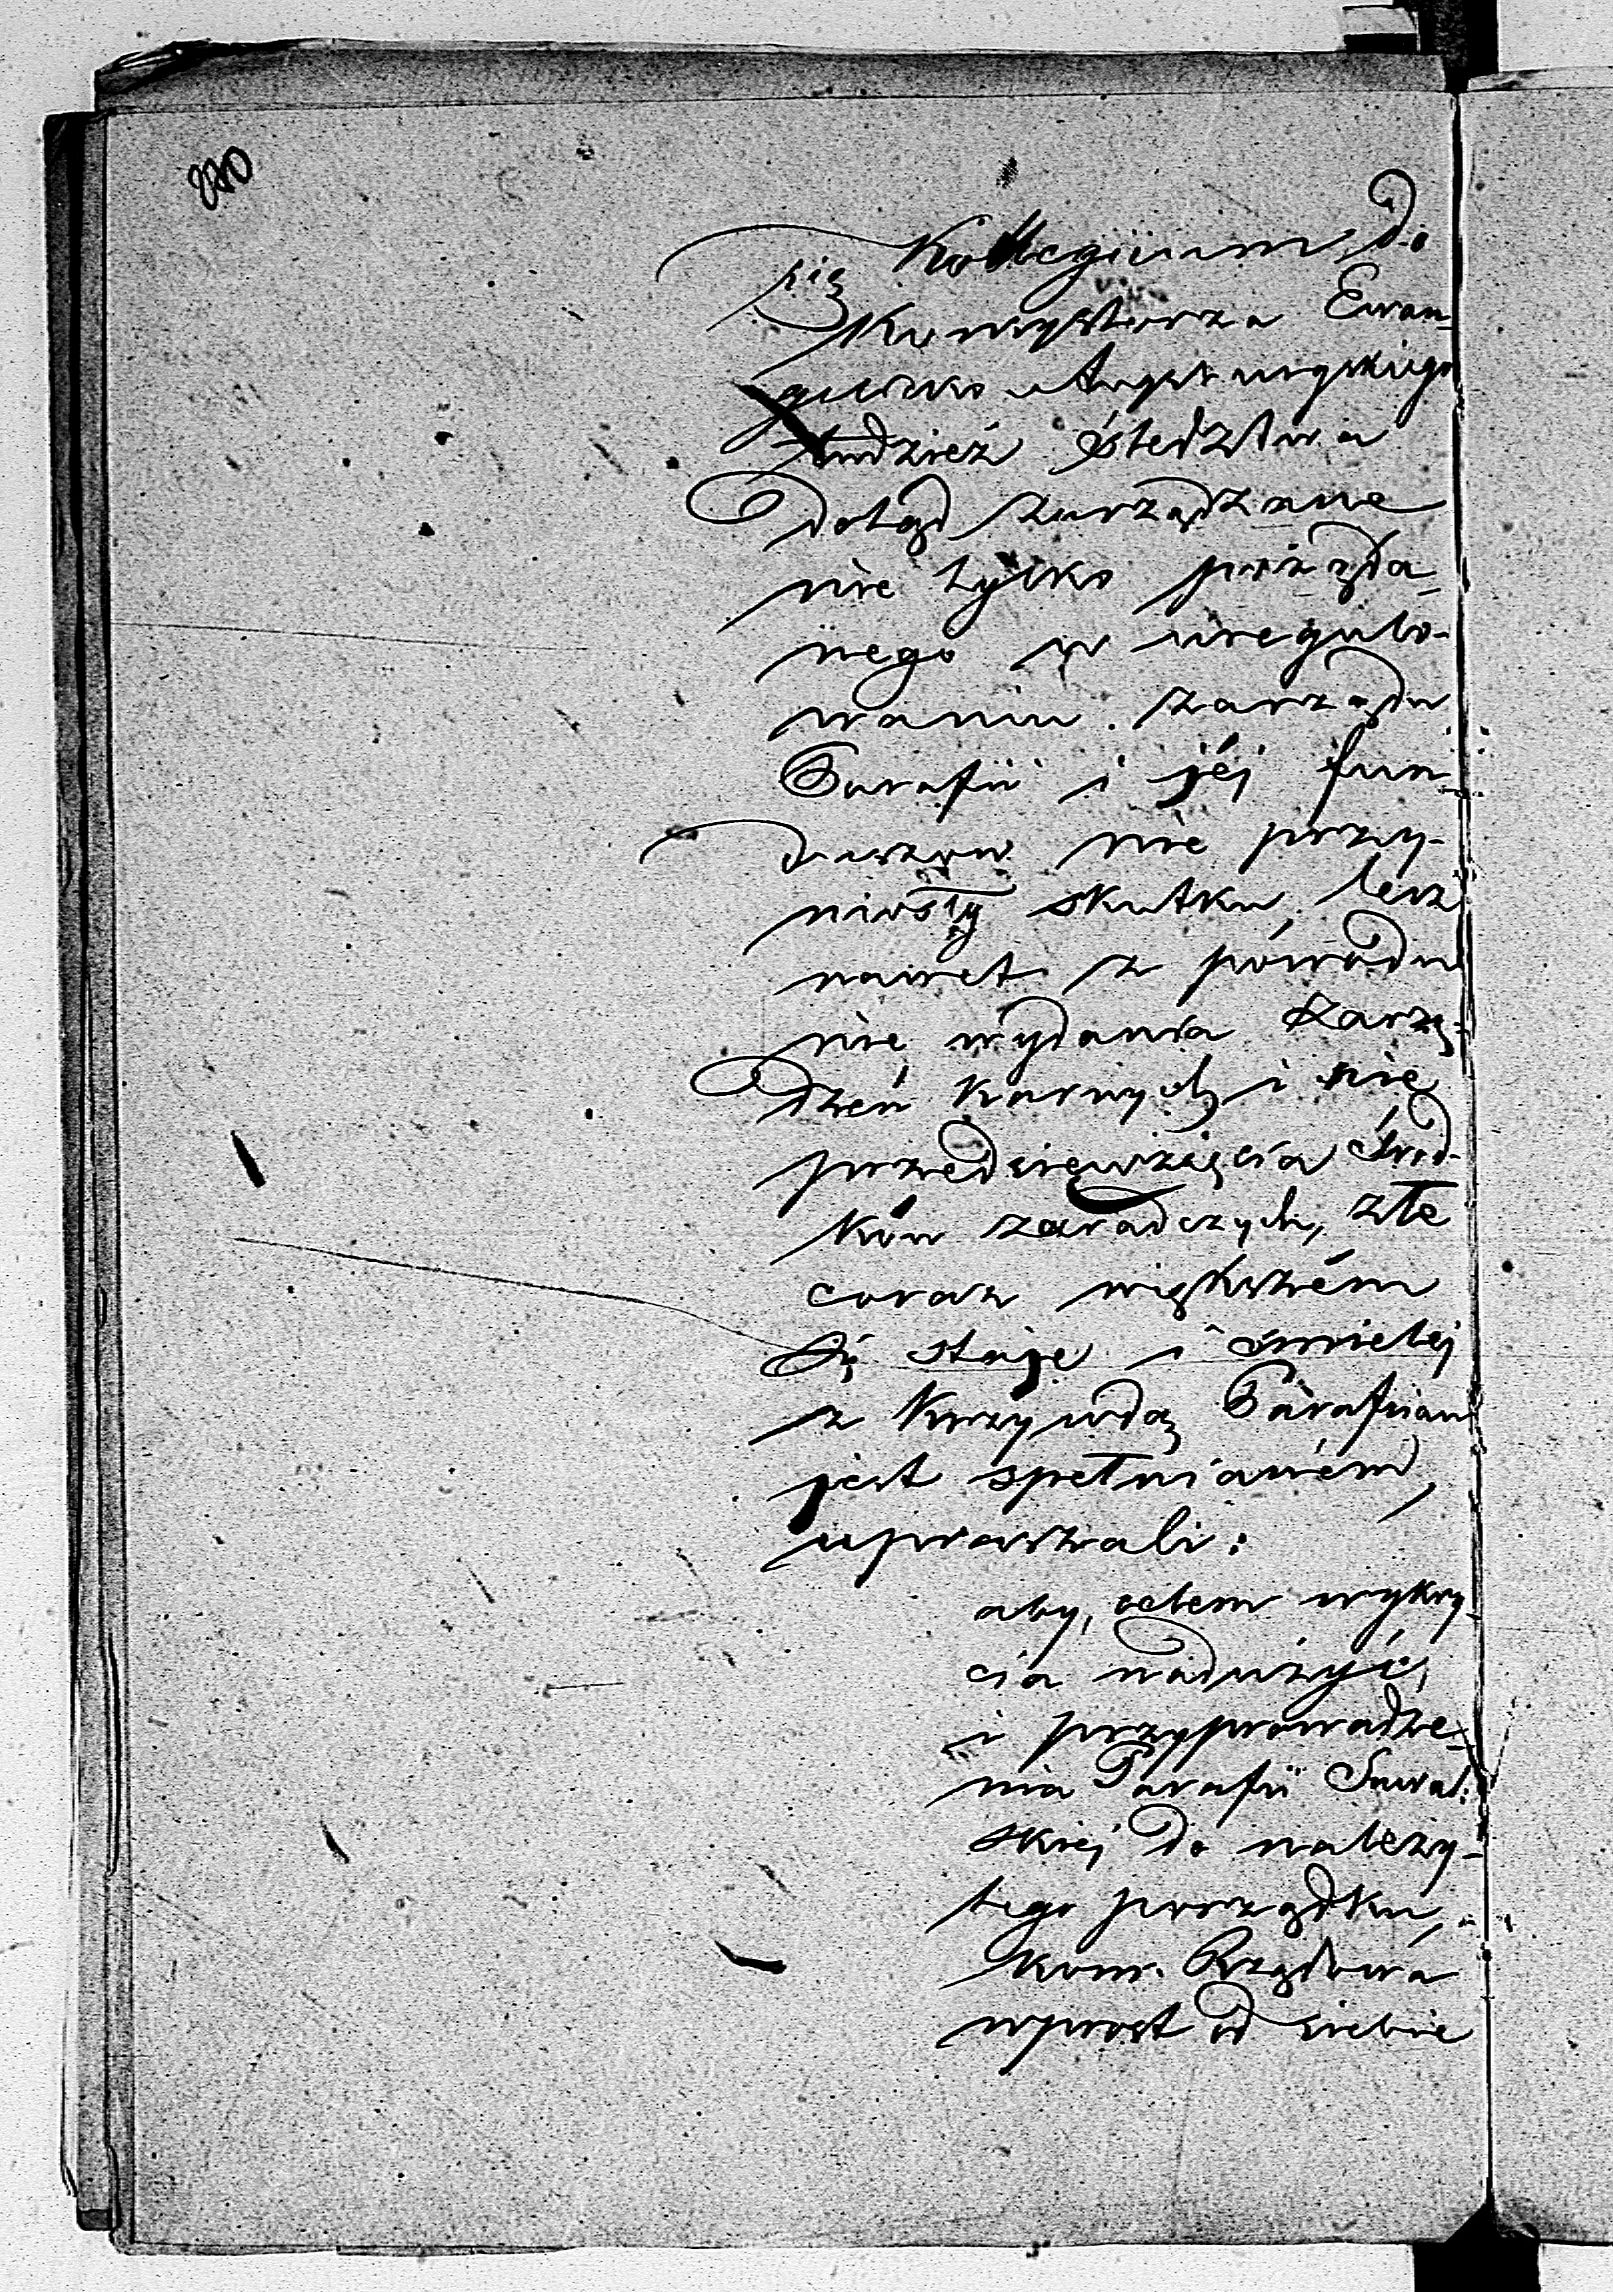 220
Kollegium do
się
Konsystorza Ewan-
gielicko Augsburgskiego
tudzież śledztwa
dotąd zarządzane
nie tylko pożąda-
nego w uregulo-
waniu zarządu
Parafii i jéj fun-
duszów nie przy-
niosły skutku, lecz
nawet z powodu
nie wydania zarzą-
dzeń karnych i nie
przedsięwzięcia środ-
ków zaradczych, złe
coraz większém
się staje i śmielej
z krzywdą Parafian
jest spełnianém,
upraszali:
aby, celem wykry-
cia nadużyć,
i przyprowadze-
nia Parafii Suwal-
skiej do należy-
tego porządku,
Kom. Rządowa
wprost od siebie